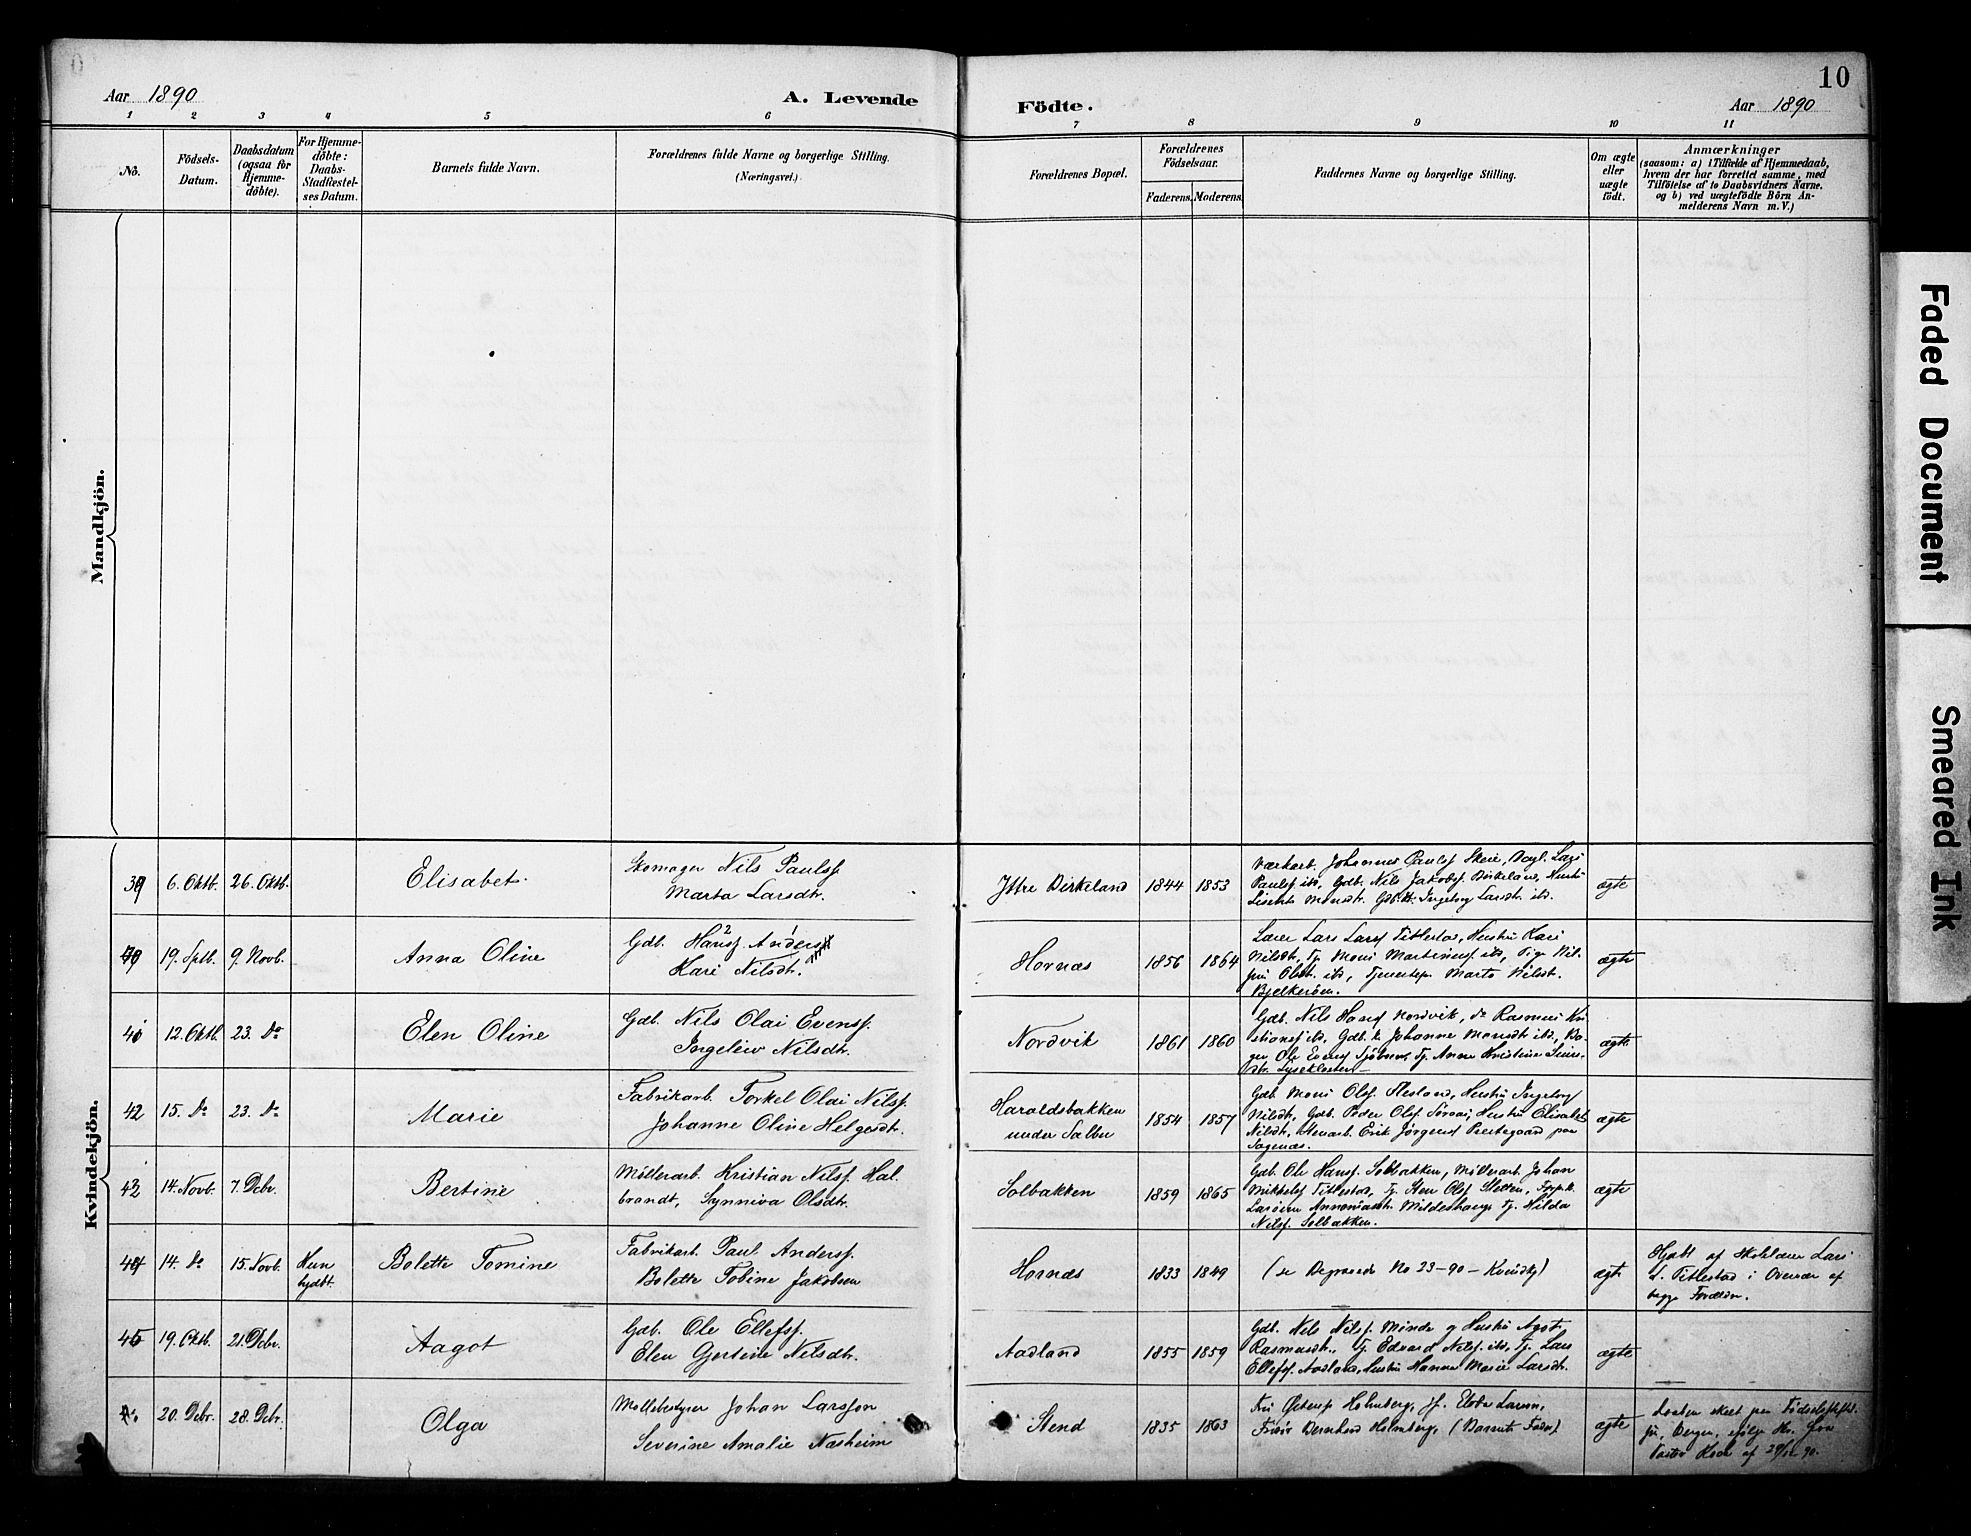 10
Aar 1890
A. Levende
Födte.
Aar 1890
1 2 3 4 5 6 7 8 9 10 11
No.
Födsels-
Datum.
Daabsdatum
(ogsaa for
Hjemme-
döbte).
For Hjemme-
döbte:
Daabs-
Stadfæstel-
ses Datum.
Barnets fulde Navn.
Forældrenes fulde Navne og borgerlige Stilling.
(Næringsvei.)
Forældrenes Bopæl.
Forældrenes
Födselsaar.
Faderens. Moderens.
Faddernes Navne og borgerlige Stilling.
Om ægte
eller
uægte
födt.
Anmærkninger
(saasom: a) i Tilfælde af Hjemmedaab,
hvem der har forrettet samme, med
Tilföielse af to Daabsvidners Navne.
og b) ved uægtefödte Börn An-
melderens Navn m. V.)
Mandkjön.
Kvindekjön.
39 6. Oktb. 26. Oktb. Elisabet
Skomager Nils Paulsf.
Marta Larsdtr.
Ittre Birkeland 1844 1853
Johannes Paulsf Skeie, Dagl. Lars
Paulsf ibd, Gdb. Nils Jakobsf. Birkeland, Hustru
Lisbet Monsdtr. Ingeborg Larsdtr. ibd.
ægte
19. Sptb. 9. Novb. Anna Oline
Gdb. Hansf. Anders
Kari Nilsdtr.
Hornæs 1856 1864
Lærer Lars Larsf Tittestad, Hustru Kari
Nilsdtr, Tj. Mons Martinusf. ibd, Pige Nil-
Olsdtr. ibd, Marta Nilsdt.
Bjelkeröen.
ægte
12 Oktb. 23. Do Elen Oline
Gdb. Nils Olai Evensf.
Ingeleiv Nilsdtr.
Nordvik 1861 1860
Gdb. Nils Hansf Nordvik, do Rasmus Kri
stiansf ibd, Gdb. k. Johanne Monsdtr ibd,
Ole Evensf Tj. Anna Kristine
Lyseklostr
ægte
42 15. Do 23. Do Marie
Fabrikarb. Torkel Olai Nilsf.
Johanne Oline Helgesdtr.
Haraldsbakken
under Sælbu 1854 1857
Gdb Mons Olsf. Flesland, Hustru Ingeborg
Nilsdtr, Gdb. Peder Olsf Hustru Elisabet
Nilsdtr, Stenarb. Erik Jörgensf Prestegaard paa
Sagenæs.
ægte
43 14. Novb. 7. Debr. Bertine
Möllerarb. Kristian Nilsf. Hal-
brandt, Synniva Olsdtr.
Solbakken 1859 1865
Gdb. Ole Hansf. Solbakken, Möllerarb. Johan
Mikkelsf Tittestad, Tj. Sten Olsf Sletten,
Mildeshaug, Tj. Hilda
Nilsf. Solbakken.
ægte
44 14. Do 15. Novb. Kun
Bolette Tomine
Fabrikarb. Paul Andersf.
Bolette Tobine Jakobsen
Hornæs 1833 1849
(se Begravede No 23-90 – Kvindkj)
ægte
Hjdbt af Skolelærer Lars
L. Tittestad i Overvær af
begge Forældre.
45 19. Oktb. 21. Debr. Aagot
Gdb. Ole Ellefsf.
Elen Gjertine Nilsdtr.
Aadland 1855 1859
Gdb. Nils Nilsf. Minde og Hustru Agot
Rasmusdtr, Tj. Edvard Nilsf. ibd, Tj. Lars
Ellefsf. Aadland, Hustru Hanna Marie Larsdtr.
ægte
20. Debr. 28. Debr. Olga
Möllebestyrer Johan Larsson
Severine Amalie Næsheim
Stend 1835 1863
Holmberg, jf. Ebba Larsen,
Bernhard Holmberg, (Barnets Fader)
ægte
Daaben skeet paa Födselsstif-
Bergen, ifölge
af 29/12 90.
Faded Document
Smeared Ink